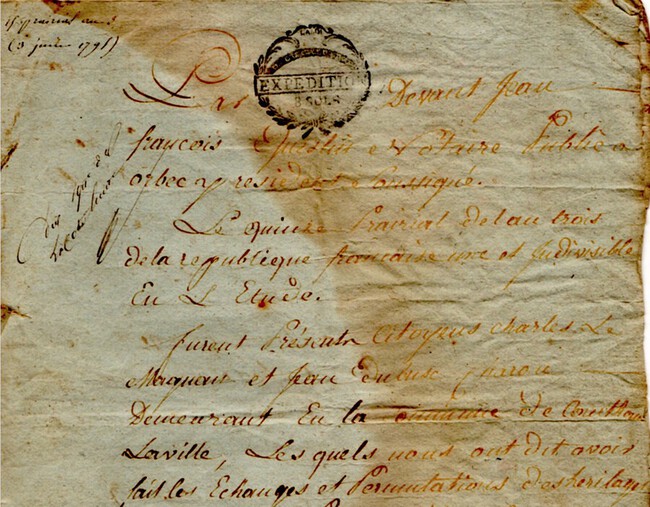 15 prairial an 3
(3 juin 1795)
EXPEDITION
8 SOLS
Par Devant Jean
françois Notaire Public a
orbec y resident soussigné.
Le quinze Prairial de l'an trois
de la republique francaise une et Indivisible
En L'Etude.
furent Présents Citoyens charles Le
Magnan et Jean Dubusc
Demeurant En la commune de
Laville, Les quels nous ont dit avoir
fait les Echanges et Permutations des heritages